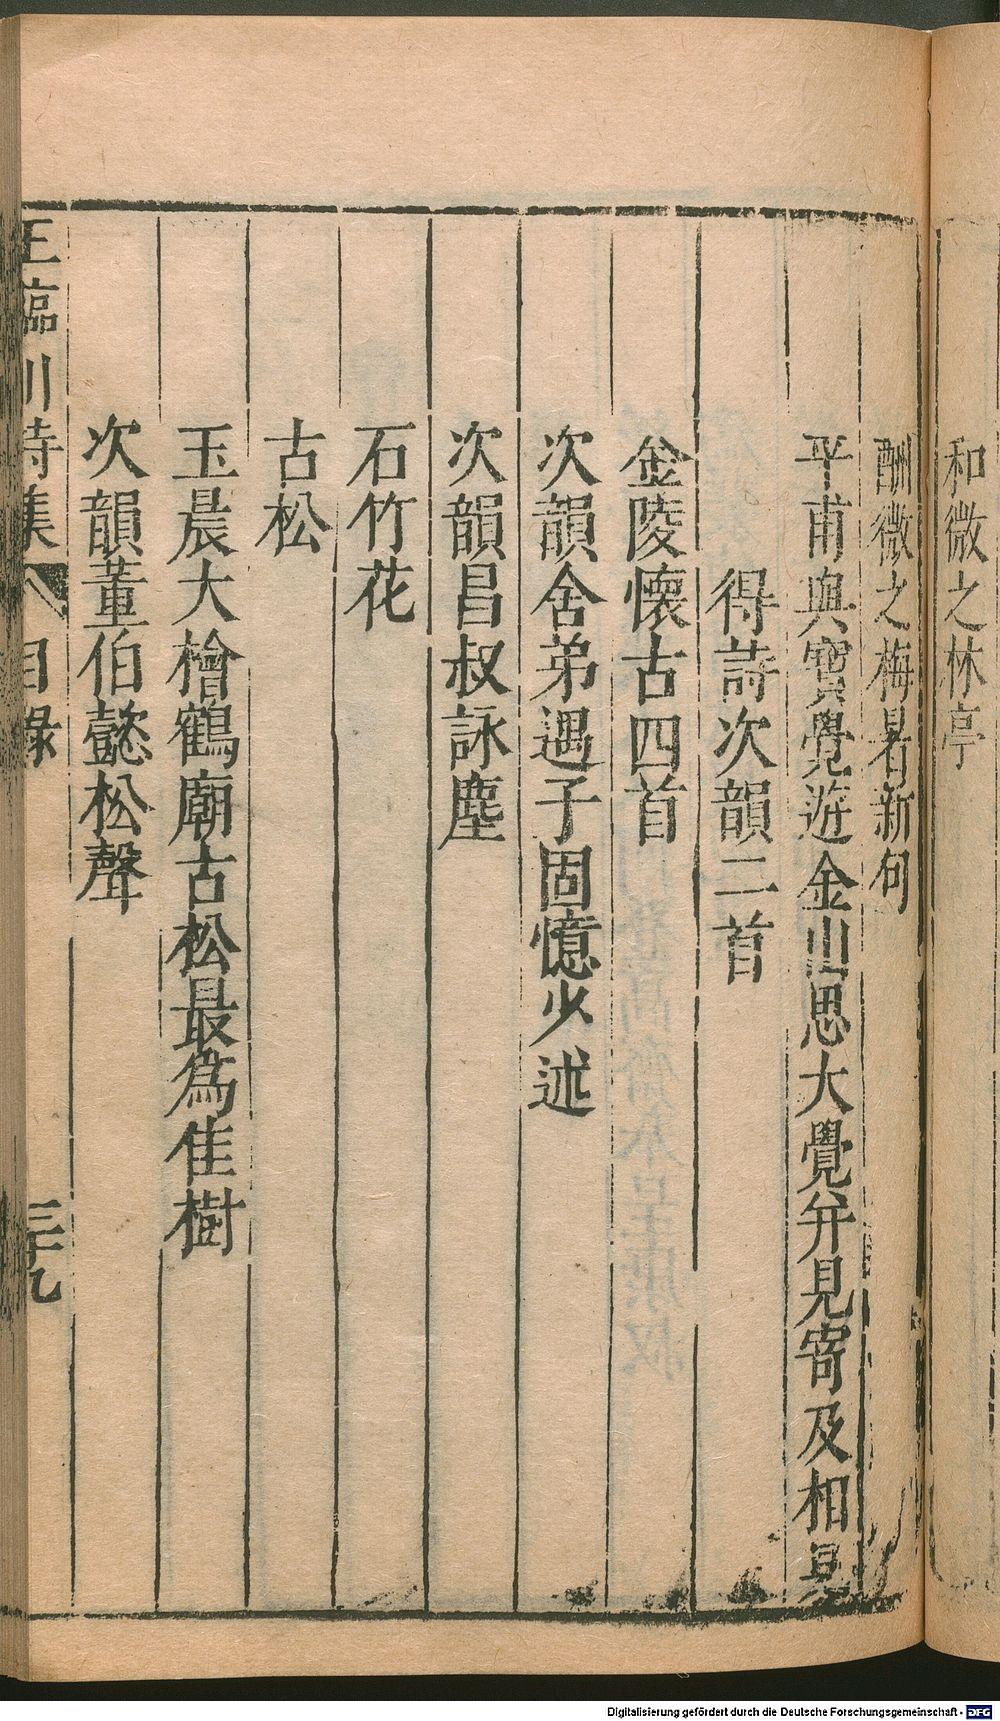 和微之林亭
酬微之梅暑新句
平甫與寶覺遊金山思大覺并見寄及相見
得詩次韻二首
金陵懷古四首
次韻舍弟遇子固憶少述
次韻昌叔詠塵
石竹花
古松
玉晨大檜鶴廟古松最爲佳樹
次韻董伯懿松聲
王臨川詩集 目錄 三十九
Digitalisierung gefördert durch die Deutsche Forschungsgemeinschaft - DFG